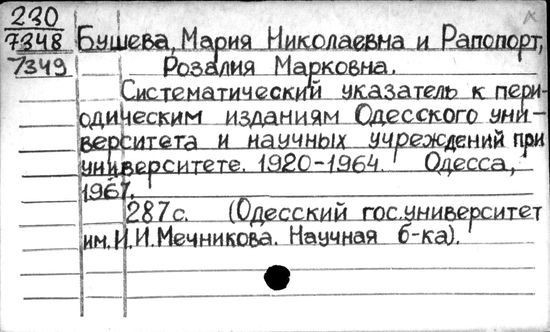 230
7348 Бушева, Мария Николаевна и Рапопорт,
7349 Розалия Марковна.
Систематический указатель к пери-
одическим изданиям Одесского уни-
верситета и научных учреждений при
университете. 1920-1964. Одесса,
1967.
287с. (Одесский гос.университет
им.И.И.Мечникова. Научная б-ка).